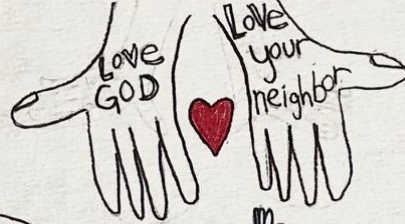 Love
GOD
Love
your
neighbor